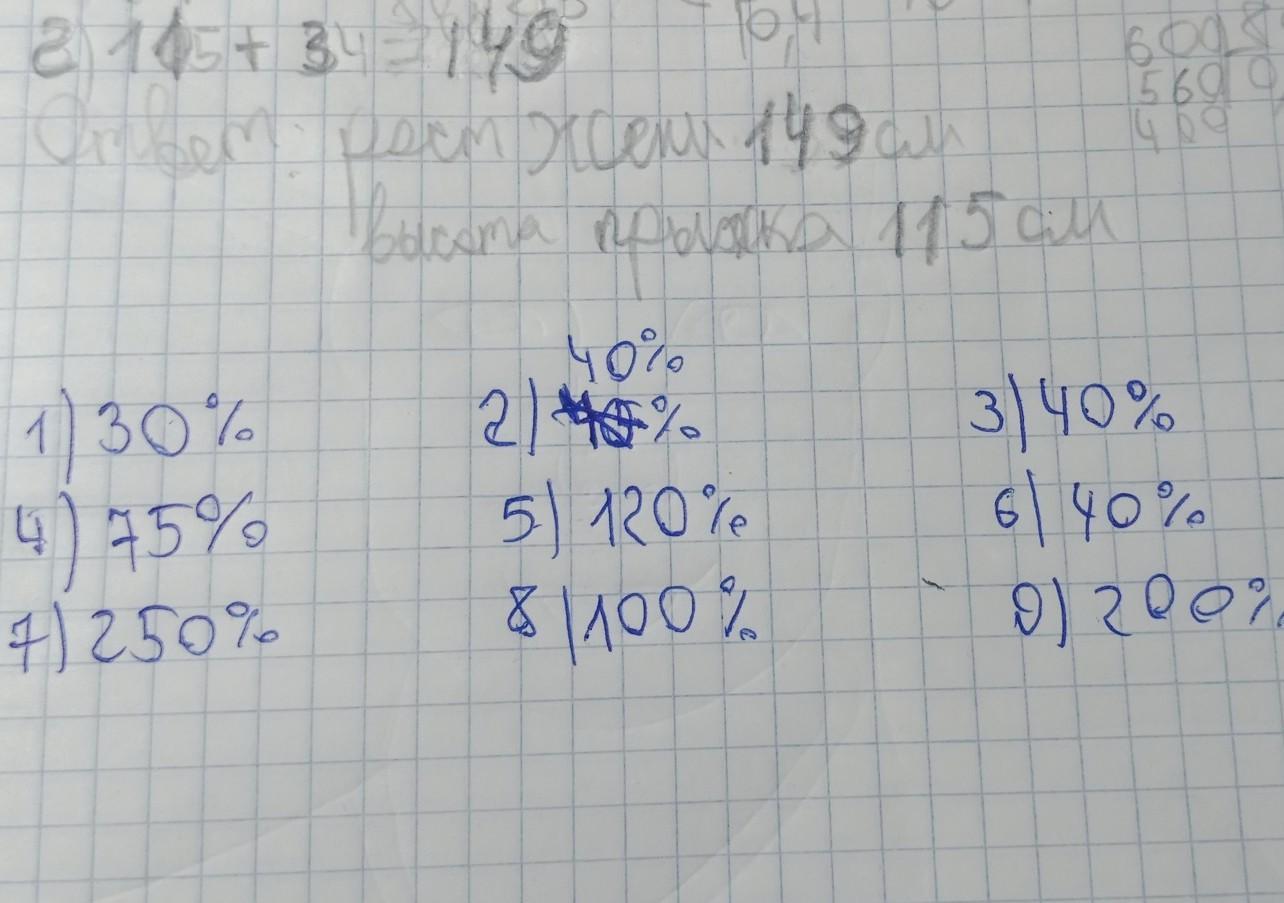 2) 115 + 34 = 149 10,4 609
Ответ: рост жен. 149 см 560
400
высота прыжка 115 см
40%
1) 30% 2) % 3) 40%
4) 75% 5) 120% 6) 40%
7) 250% 8) 100% 9) 200%